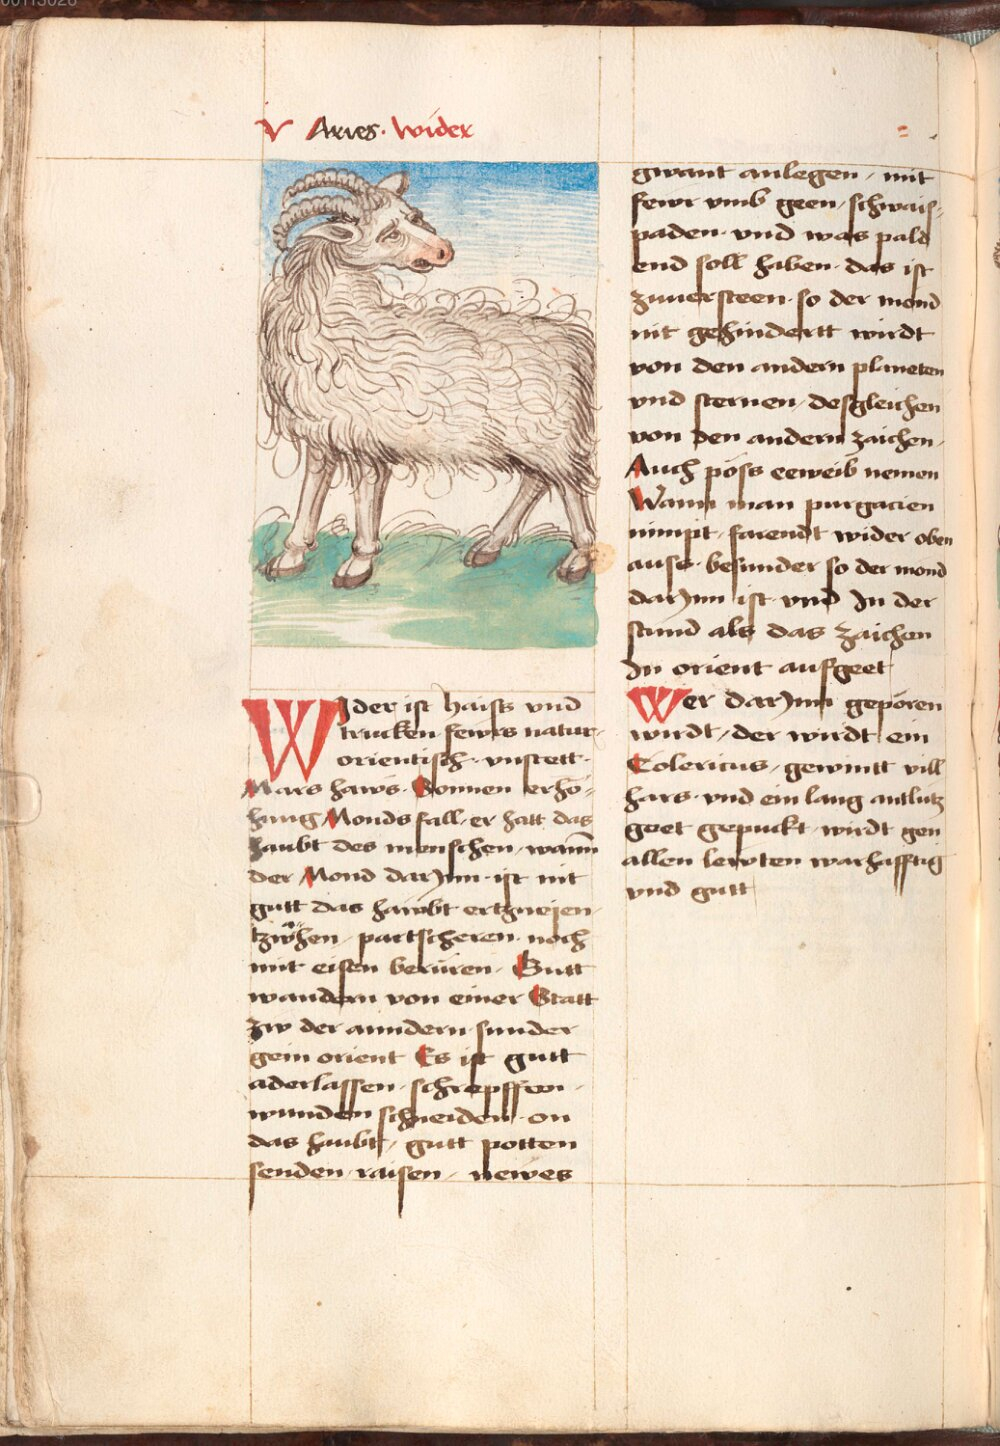 Aries · Wider
Wider ist haiss vnd
trucken fewrs natur
orientisch · vnstett ·
Mars haws · Sonnen erhö-
hung Monds fall · er hatt das
haubt des menschen · wann
der Mond dar Inn · ist nit
gutt das hawbt ertzneien
tzwohen · partscheren · noch
mit eisen berüren · Gutt
wandern von einer Statt
zw der anndern sunder
gein orient Es ist gutt
aderlassen · schrepffen ·
wunden schneiden · on
das haubt / gutt potten
senden · raisen · newes
gwant anlegen / mit
fewr vmb geen / schwais-
paden · vnd was pald
end soll haben · das ist
zuuersteen · so der mond
nit gehindertt wirdt
von den andern planeten
vnd sternen / desgleichen
von den andern zaichen ·
Auch pöss eeweib nemen
Wann man purgacien
nimpt · farendt wider oben
auss · besunder so der mond
dar Inn ist · vnd In der
stund als das zaichen
In orient aufgeet
Wer dar Inn geporen
wirdt / der wirdt ein
Colericus / gewintt vill
hars · vnd ein lang antlutz
geet gepuckt · wirdt gen
allen lewten warhafftig
vnd gutt